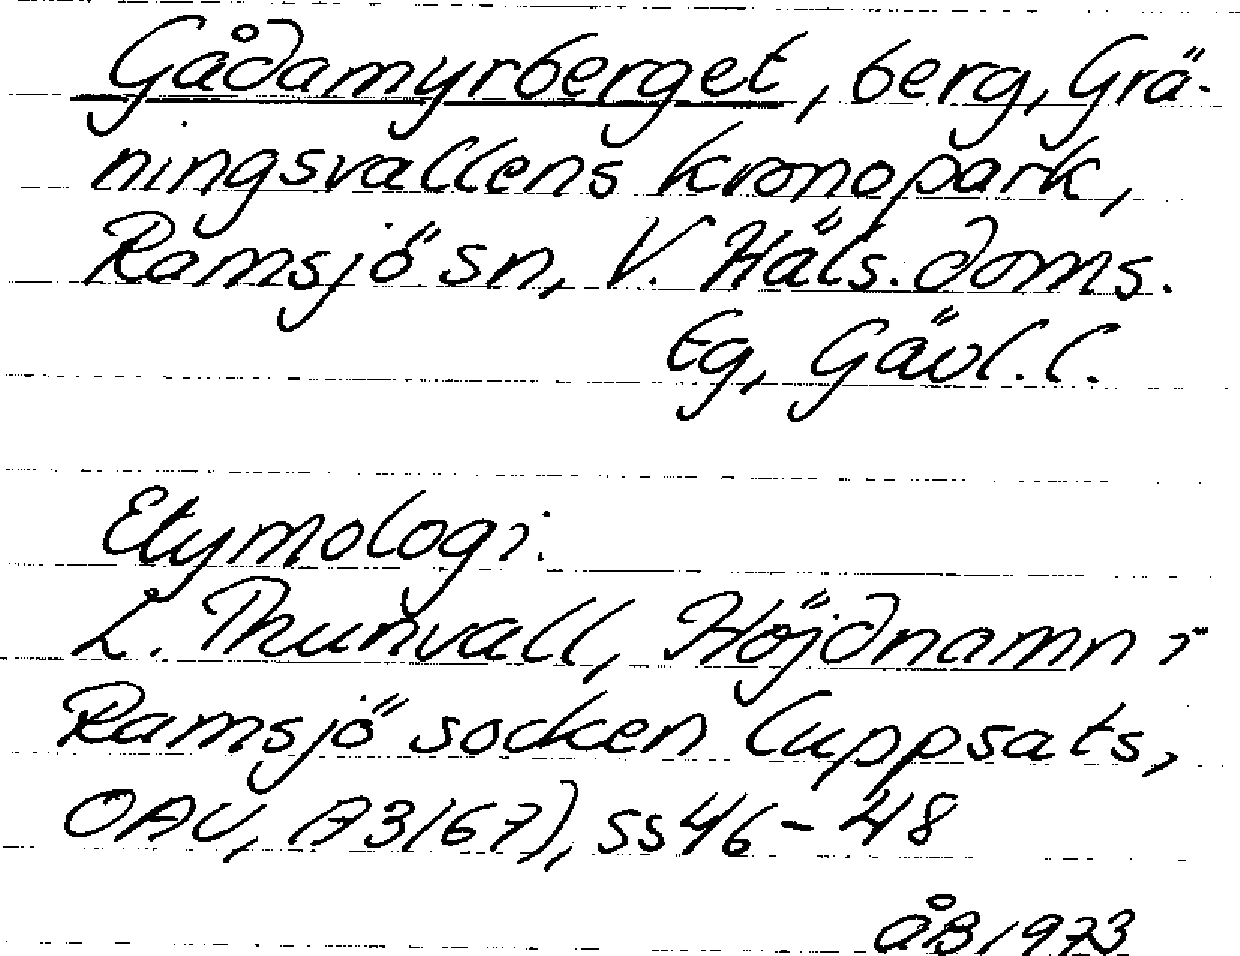 Gådamyrberget, berg, Grä-
ningsvallens kronopark,
Ramsjö sn, V. Häls. doms.
Eg, Gävl. l.
Etymologi.
L. Thunvall, Höjdnamn i
Ramsjö socken (uppsats,
OAU, A3/67), ss 46-48
ÅB 1973